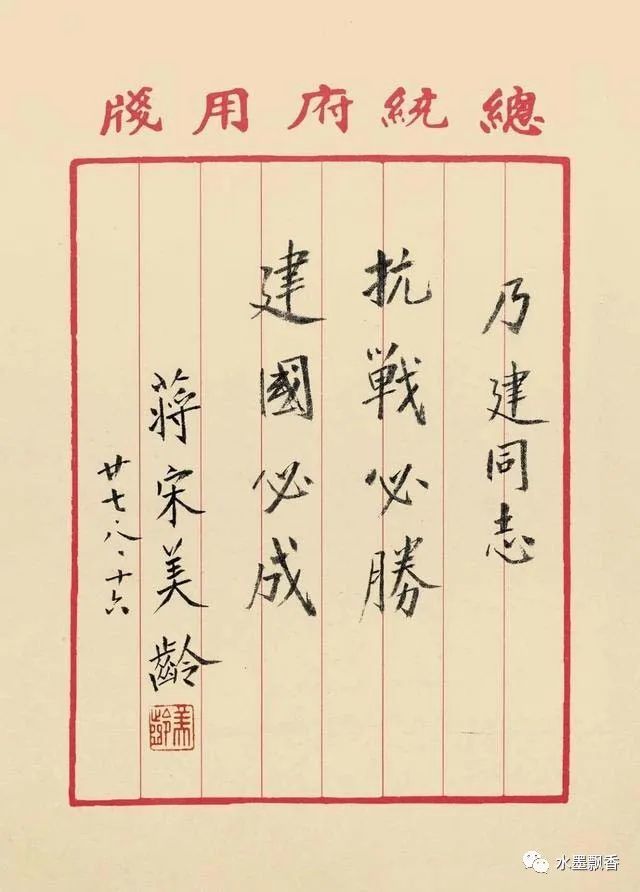 總統府用牋
乃建同志
抗戰必勝
建國必成
蔣宋美齡
廿七、八、十六
美齡
水墨飘香